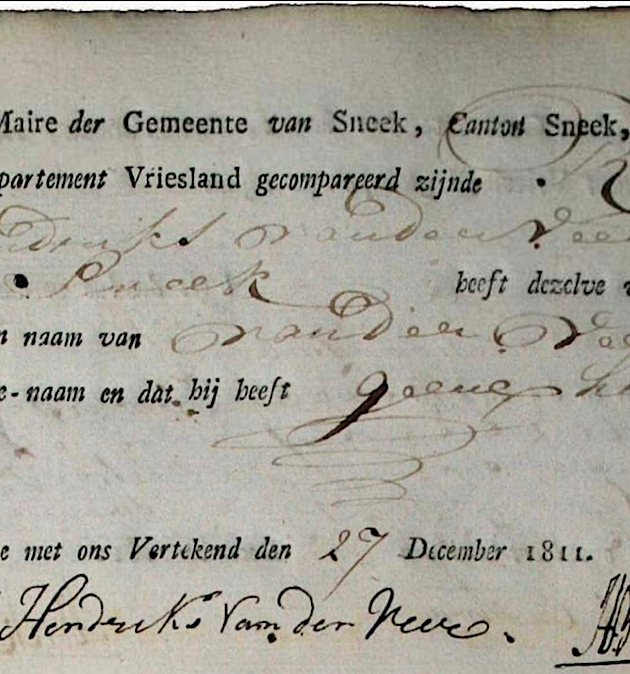 Maire der Gemeente van Sneek, Canton Sneek,
partement Vriesland gecompareerd zijnde
driks van der Vee
Sneek heeft dezelve
n naam van van der Vee
e-naam en dat hij heeft geene
e met ons Vertekend den 27 December 1811.
Hendriks van der Veer.